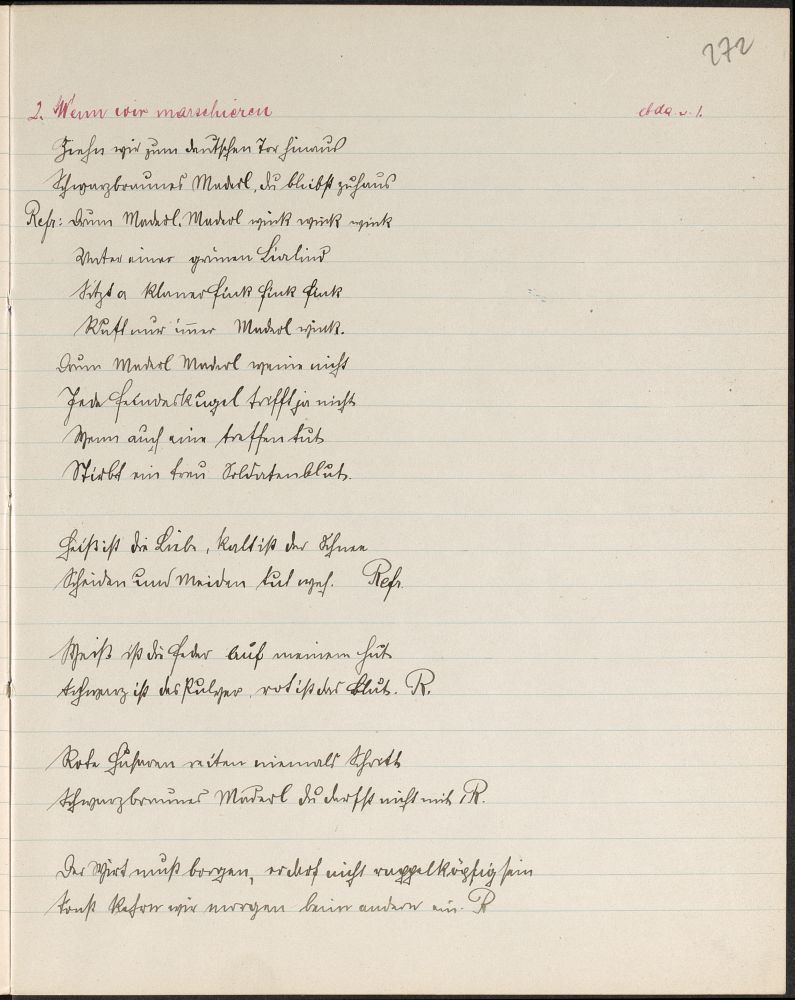 272
2. Wenn wir marschieren ebda. v. 1.
Ziehn wir zum deutschen Tor hinaus
Schwarzbraunes Maderl, du bleibst zuhaus
Refr: Drum Maderl, Maderl wink wink wink
Unter einer grünen
Sitzt a klaner Fink Fink Fink
Ruft nur immer Maderl wink.
Drum Maderl Maderl weine nicht
Jede Feindeskugel trifft ja nicht
Wenn auch eine treffen tut
Stirbt ein treu Soldatenblut.
Heiß ist die Liebe, kalt ist der Schnee
Scheiden und Meiden tut weh. Refr.
Weiß ist die Feder auf meinem Hut
Schwarz ist das Pulver, rot ist das Blut. R.
Rote Husaren reiten niemals Schritt
Schwarzbraunes Maderl du darfst nicht mit R.
Der Wirt muß borgen, er darf nicht rappelköpfig sein
Sonst kehrn wir morgen beim andern ein. R